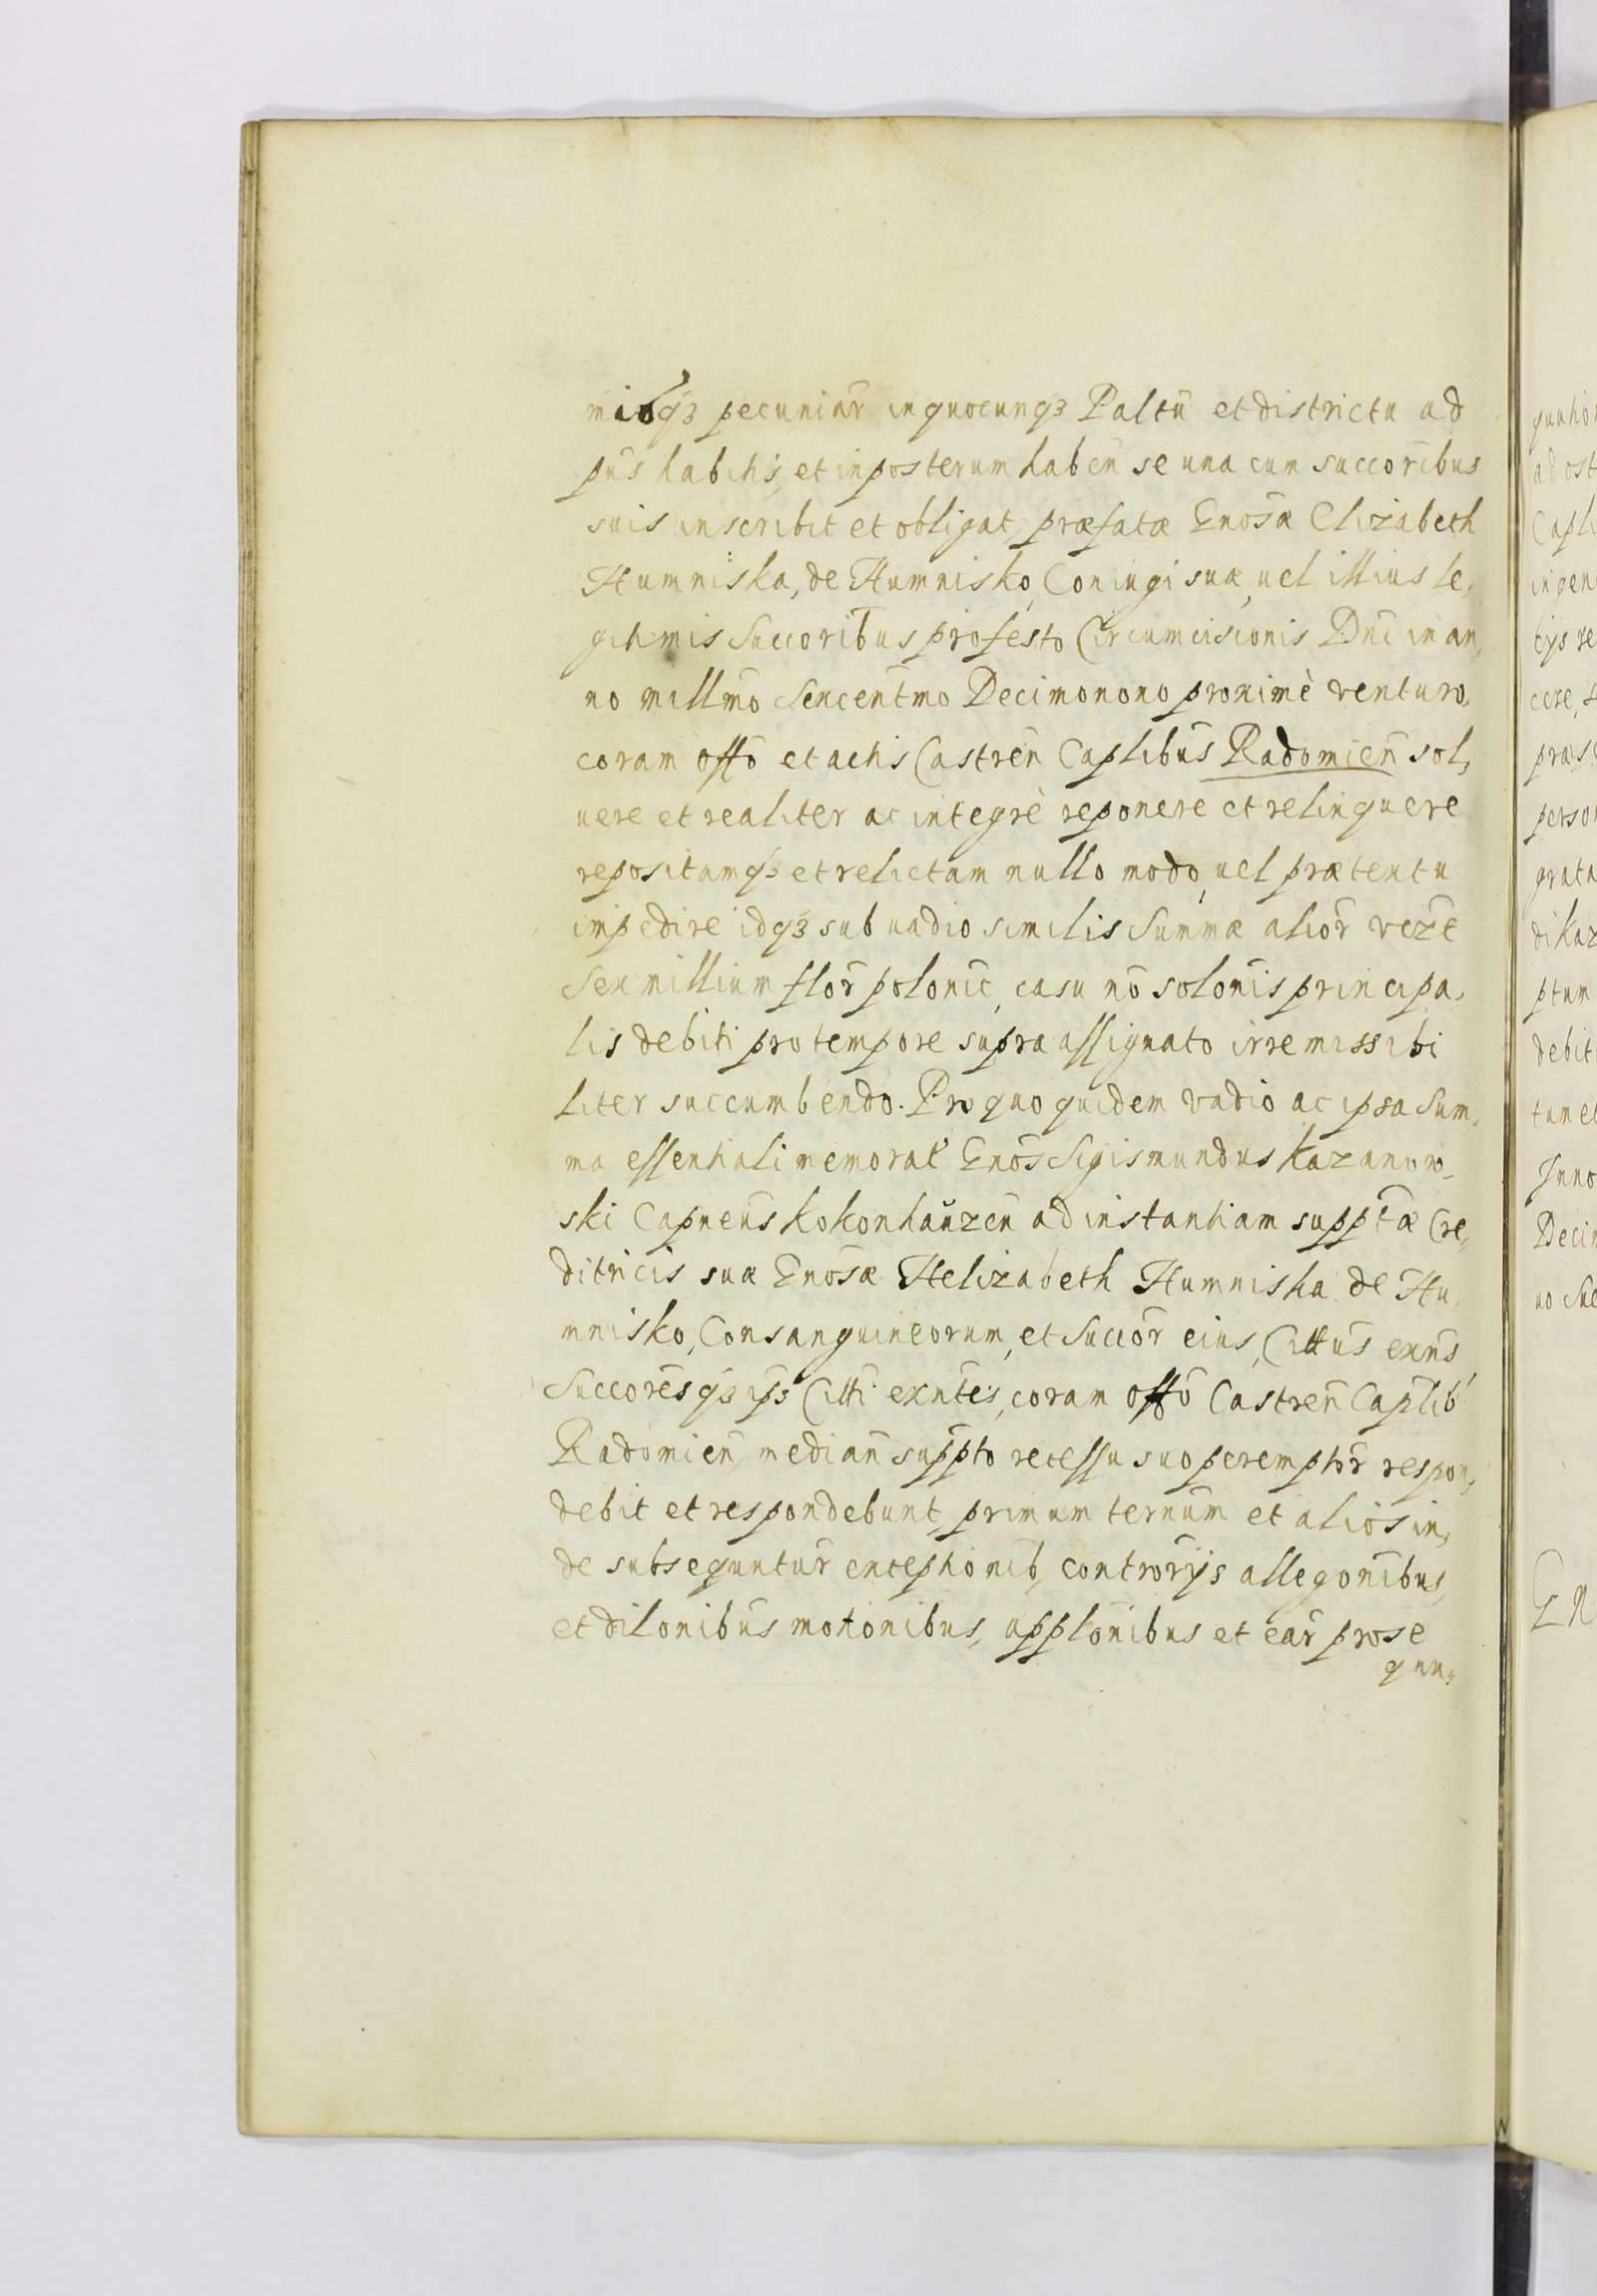 misq3 pecuniar̄ in quocunq3 Paltū et districtu ad
pn̄s habitis, et in posterum haben̄ se una cum succoribus
suis inscribit et obligat, præfatæ Gnosæ Elizabeth
Humniska, de Humnisko, Coniugi suæ, uel illius le,
gitimis Succoribus pro festo Circumcisionis Dni in an,
no millmo Sexcentmo Decimonono proximè venturo,
coram offō et actis Castren̄ Caplibus Radomien̄ sol,
uere et realiter ac integrè reponere et relinquere
repositamq3 et relictam nullo modo, uel prætextu
impedire idq3 sub uadio similis Summæ alior̄ veze
Sex millium flor̄ polonic̄, casu nō solonis principa,
lis debiti pro tempore supra assignato irremissibi
liter succumbendo. Pro quo quidem vadio ac ipsa Sum,
ma essentiali memorat Gnos Sigismundus Kazanow,
ski Capneus Kokonhauzen̄ ad instantiam supptæ Cre,
ditricis suæ Gnosæ Helizabeth Humniska de Hu,
mnisko, Consanguineorum, et Succor̄ eius, Cittus exns
Succoresq3 ips Citti exntes, coram offō Castren̄ Caplib
Radomien̄, median̄ suppto recessu suo peremptor̄ respon,
debit et respondebunt, primum ternum et alios in,
de subsequntur exceptionib, controrijs allegonibus,
et dilonibus motionibus, applonibus et ear̄ prose
quu,